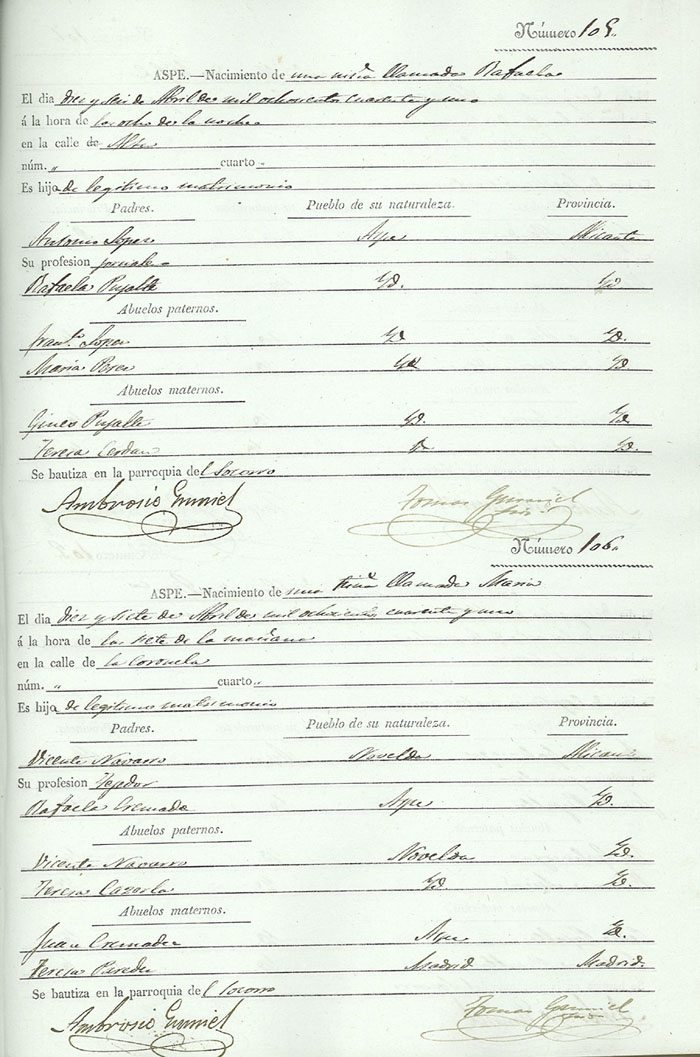 Número 105.
ASPE.—Nacimiento de una niña llamada Rafaela
El dia diez y seis de Abril de mil ochocientos cuarenta y uno
á la hora de las ocho de la noche
en la calle de
núm. „ cuarto -
Es hijo de legitimo matrimonio
Padres. Pueblo de su naturaleza. Provincia.
Antonio Lopez Aspe Alicante
Su profesion jornalero
Rafaela Pujalte Yd. Yd.
Abuelos paternos.
Fran.co Lopez Yd. Yd.
Maria Yd Yd
Abuelos maternos.
Gines Pujalte Yd. Yd.
Teresa Cerdan Yd.
Se bautiza en la parroquia del Socorro
Ambrosio Gumiel Tomas Gumiel
srio
Número 106.
ASPE.—Nacimiento de una niña llamada Maria
El dia diez y siete de Abril de mil ochocientos cuarenta y uno
á la hora de las siete de la mañana
en la calle de la Coronela
núm. „ cuarto „
Es hijo de legitimo matrimonio
Padres. Pueblo de su naturaleza. Provincia.
Vicente Navarro Novelda Alicante
Su profesion Tejedor
Rafaela Cremades Aspe Yd.
Abuelos paternos.
Vicente Navarro Novelda Yd.
Teresa Cazorla Yd Yd.
Abuelos maternos.
Juan Cremades Aspe Yd.
Teresa Paredes Madrid Madrid.
Se bautiza en la parroquia del Socorro
Ambrosio Gumiel Tomas Gumiel
srio